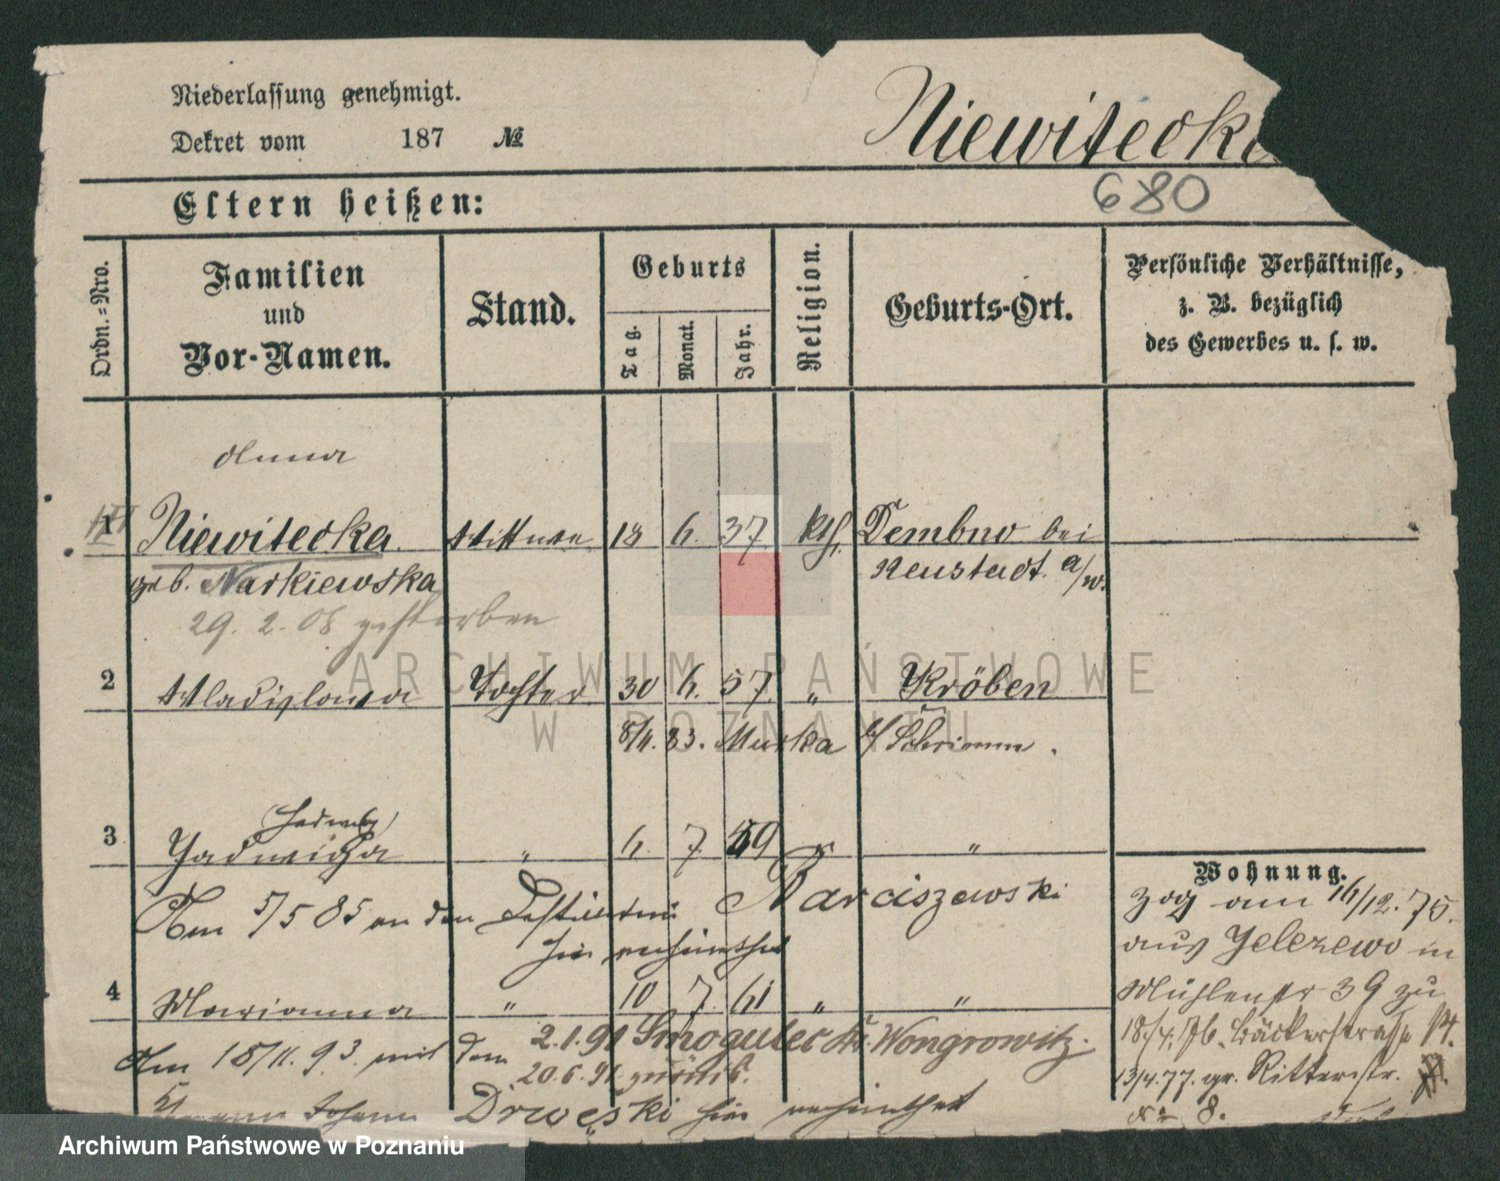 Niederlassung genehmigt.
Dekret vom 187 №
Niewitecka
680
Eltern heißen:
Ordn.=Nro.
Familien
und
Vor-Namen.
Stand.
Geburts
Tag.
Monat.
Jahr.
Religion.
Geburts-Ort.
Persönliche Verhältnisse,
z. B. bezüglich
des Gewerbes u. s. w.
Anna
1 Niewitecka Wittwe 18 6. 37. kth. Dembno bei
geb. Narkiewska Neustadt a/w.
29. 2. 08 gestorben
2 Wladislawa Tochter 30 6. 57. " Kröben
8/11. 83. Murka b/ Schrimm.
(Hedwig)
3 Jadwiga " 6. 7. 59 " "
Am 5/5 85 an den Narciszewski
hier verheirathet
Wohnung.
zog am 16/12. 75.
aus Jelezewo in
Mühlenstr 39 zu
4 Marianna " 10 7. 61 " "
2.1.91 Smogulec Kr. Wongrowitz.
Am 18/11. 93. mit dem
20.6.91 zurück.
Johann Drweski hier verheirathet
18/4. 76. Bäckerstrasse 14.
13/4. 77. gr. Ritterstr.
No 8.
ARCHIWUM PAŃSTWOWE
W POZNANIU
Archiwum Państwowe w Poznaniu